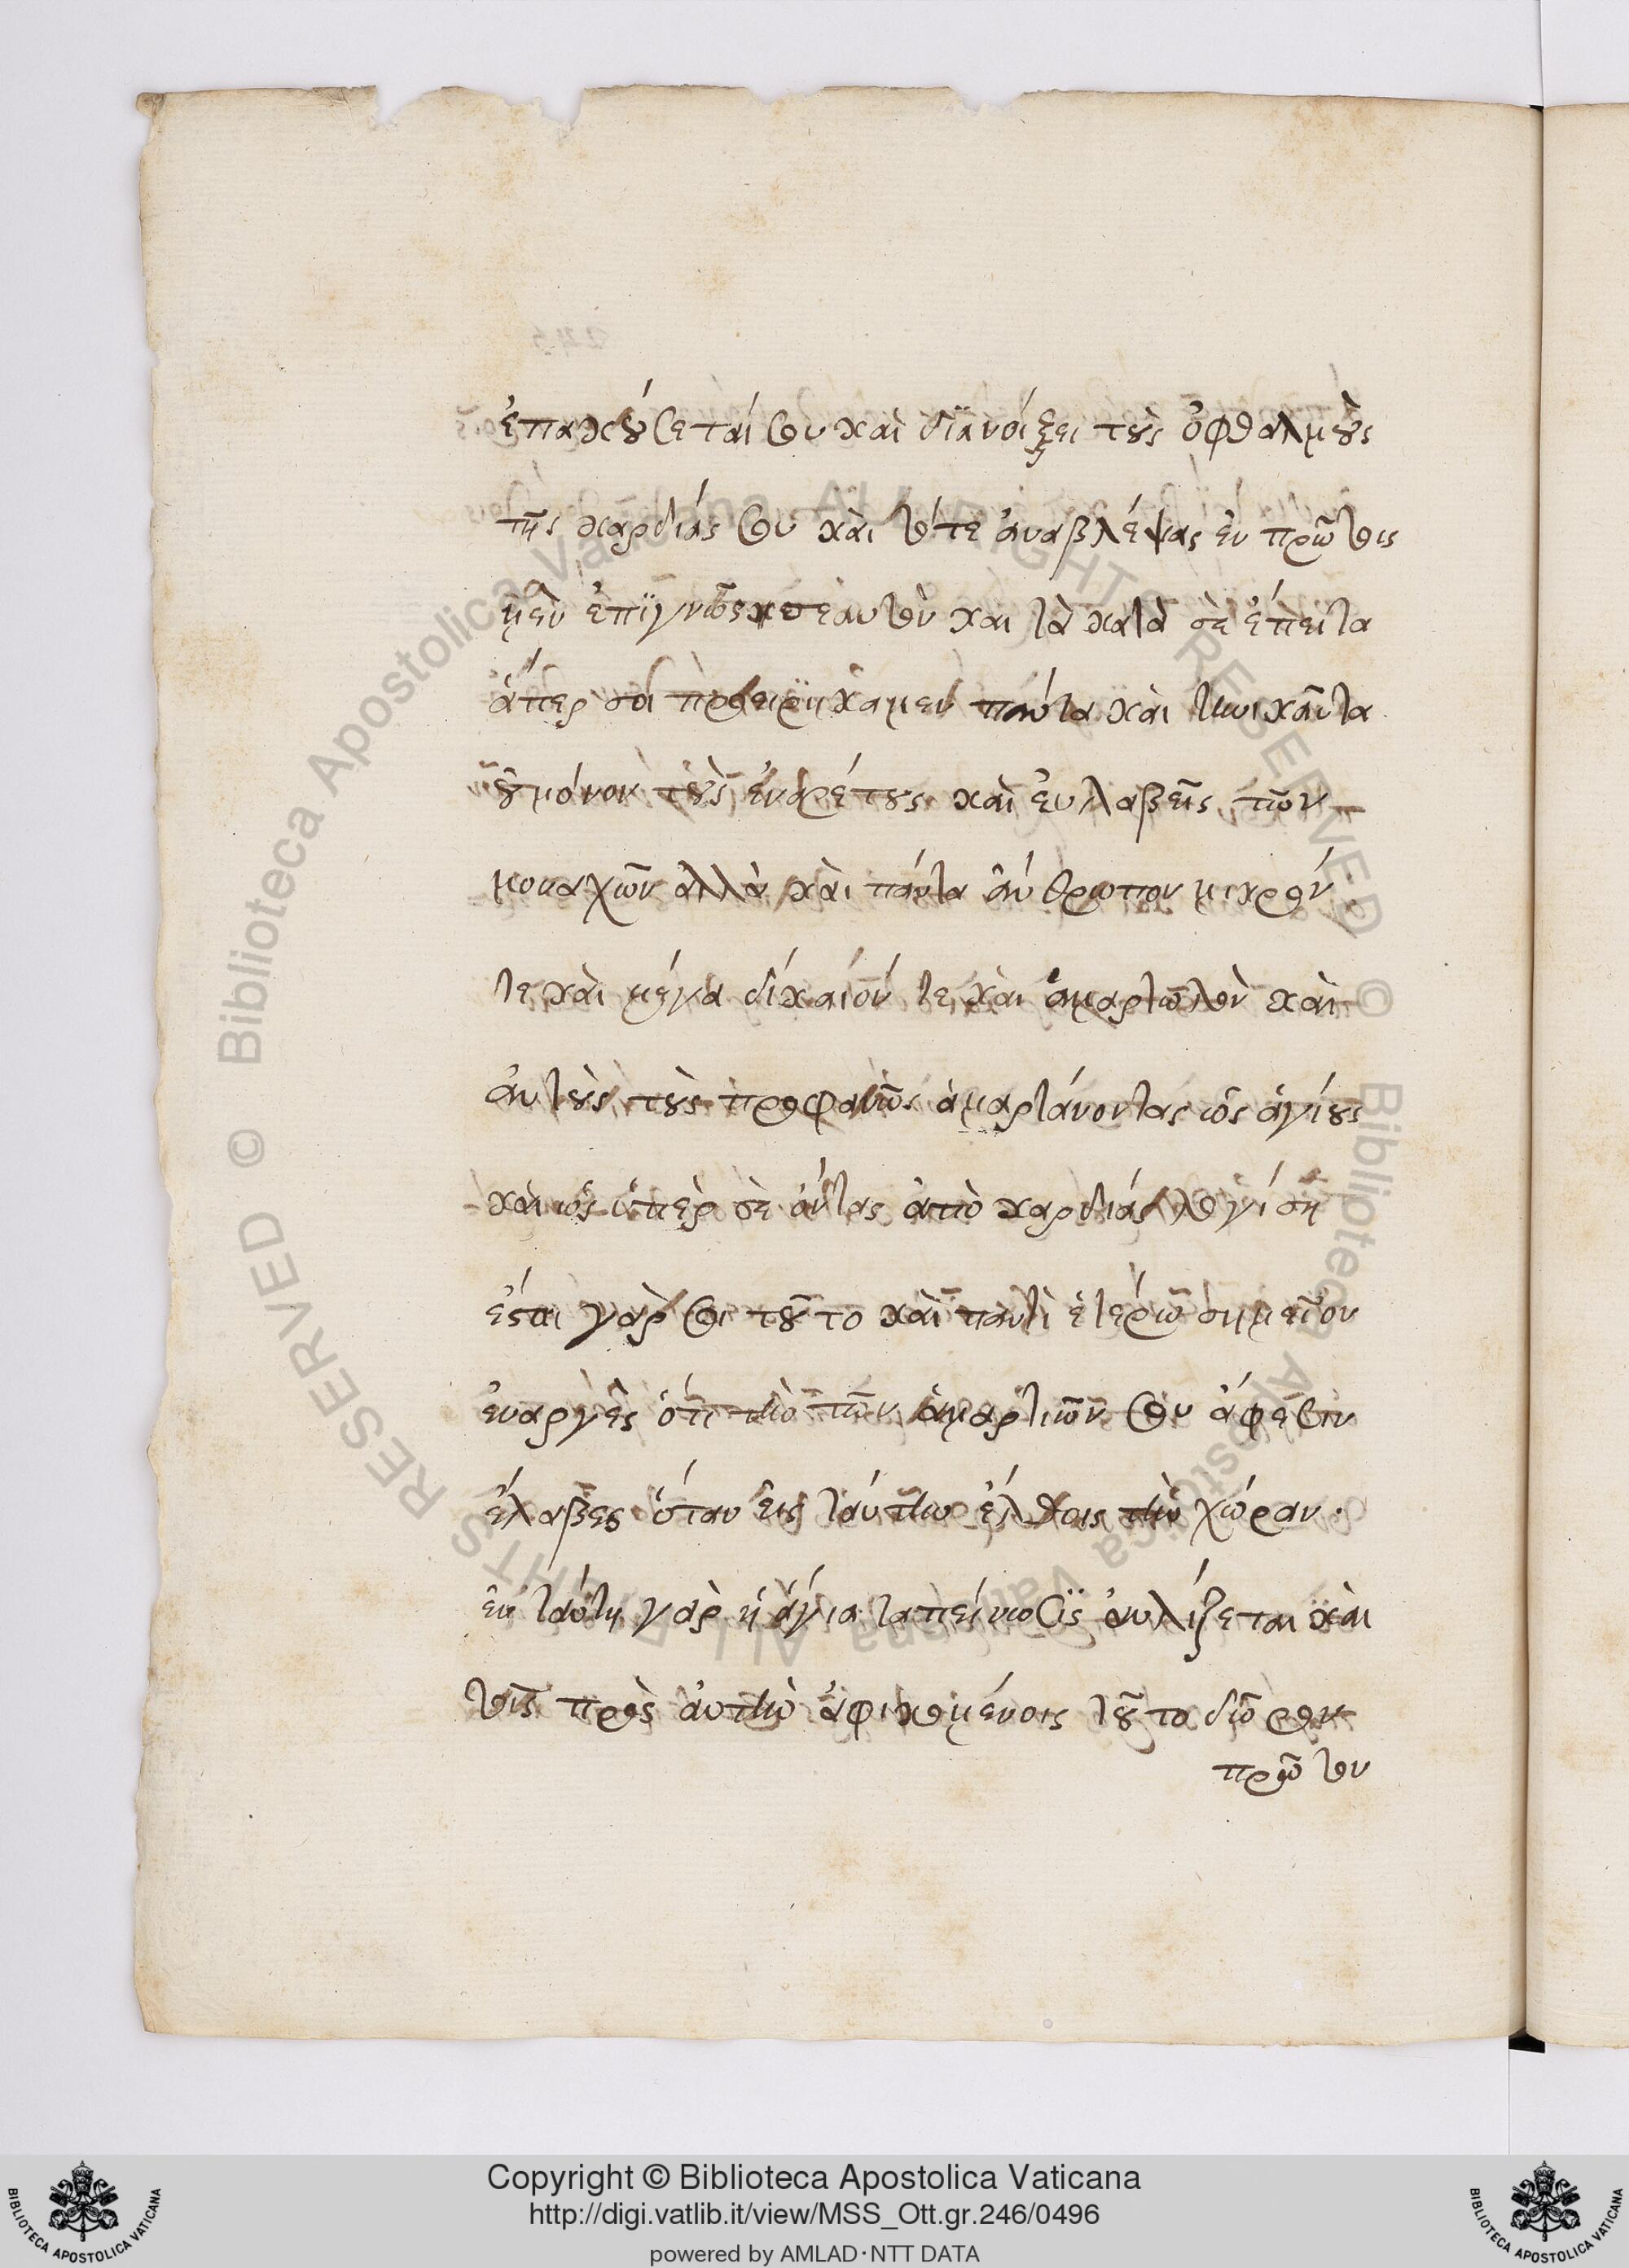 ἐπακούσεταί σου καὶ διανοίξει τοὺς ὀφθαλμοὺς
τῆς καρδίας σου καὶ τότε ἀναβλέψας ἐν πρώτοις
μὲν ἐπιγνώσῃ σεαυτὸν καὶ τὰ κατὰ σὲ ἔπειτα
ἅπερ σοι προειρήκαμεν πάντα καὶ τηνικαῦτα
οὐ μόνον τοὺς ἐναρέτους καὶ εὐλαβεῖς τῶν
μοναχῶν ἀλλὰ καὶ πάντα ἄνθρωπον μικρόν
τε καὶ μέγα δίκαιόν τε καὶ ἁμαρτωλὸν καὶ
αὐτοὺς τοὺς προφανῶς ἁμαρτάνοντας ὡς ἁγίους
καὶ ὡς ὑπὲρ σὲ ὄντας ἀπὸ καρδίας λογίσῃ
ἔσται γάρ σοι τοῦτο καὶ παντὶ ἑτέρω σημεῖον
ἐναργὲς ὅτι τὴν τῶν ἁμαρτιῶν σου ἄφεσιν
ἔλαβες ὅταν εἰς ταύτην ἔλθοις τὴν χώραν.
ἐν ταύτη γὰρ ἡ ἁγία ταπείνωσις αὐλίζεται καὶ
τοῖς πρὸς αὐτὴν ἀφικομένοις τοῦτο δῶρον
πρῶτον
Copyright © Biblioteca Apostolica Vaticana
http://digi.vatlib.it/view/MSS_Ott.gr.246/0496
powered by AMLAD·NTT DATA